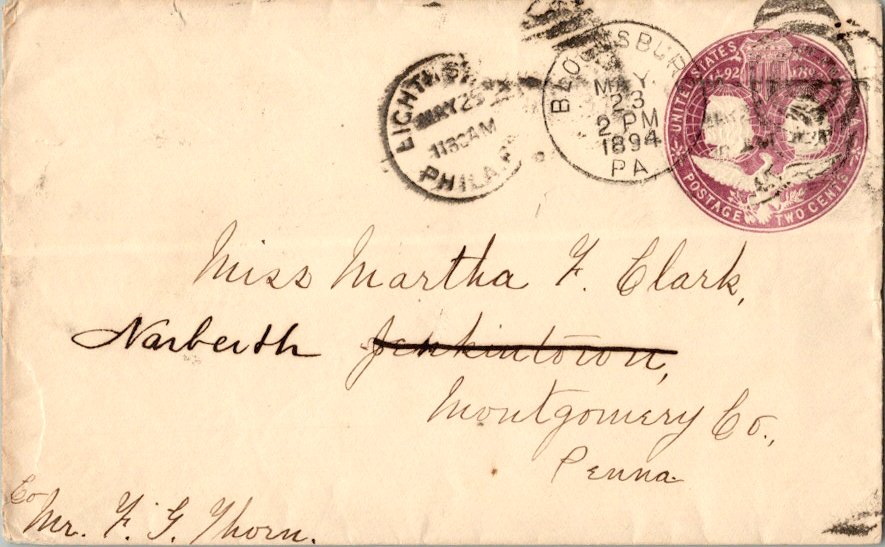 EIGHTH ST.
MAY 23
1130AM
PHILA. PA
BLOOMSBURG
MAY
23
2 PM
1894
PA
UNITED STATES
1492
POSTAGE TWO CENTS
Miss Martha F. Clark,
Narberth Jenkintown,
Montgomery Co.,
Penna.
Co
Mr. F. G. Thorn.